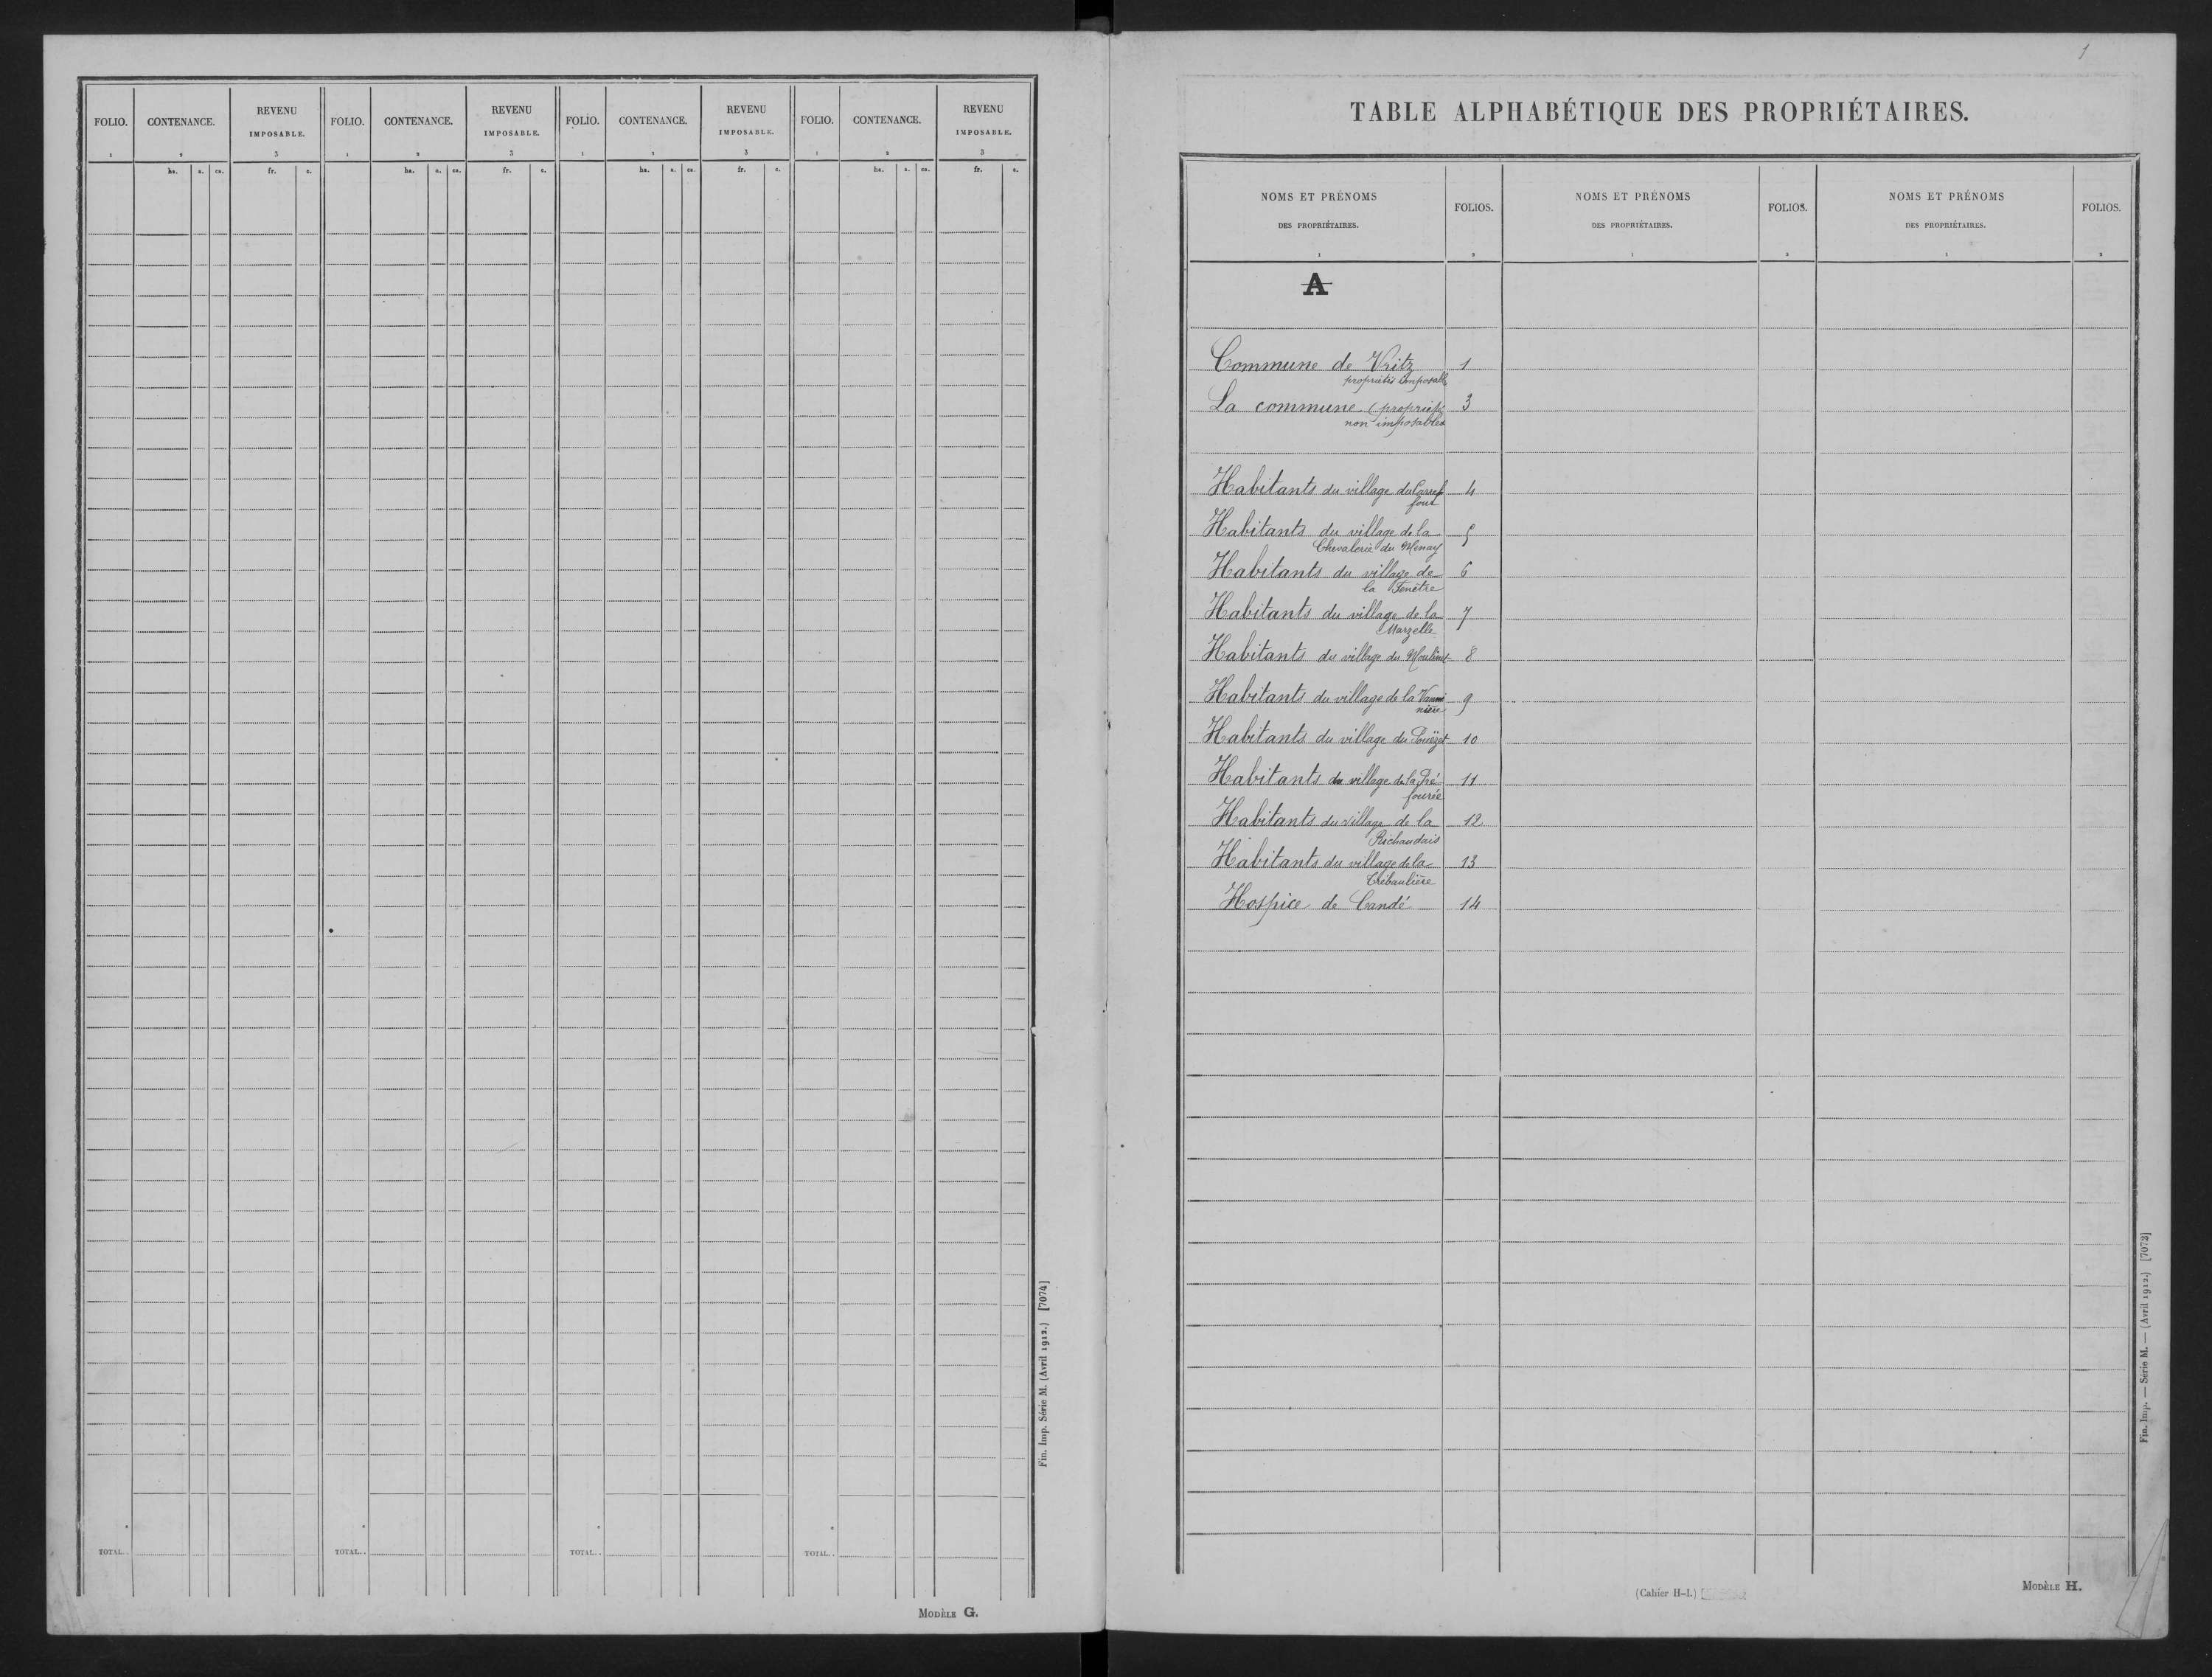 FOLIO. CONTENANCE. REVENU IMPOSABLE. FOLIO. CONTENANCE. REVENU IMPOSABLE. FOLIO. CONTENANCE. REVENU IMPOSABLE. FOLIO. CONTENANCE. REVENU IMPOSABLE.
1 2 3 1 2 3 1 2 3 1 2 3
ha. a. ca. fr. c. ha. a. ca. fr. c. ha. a. ca. fr. c. ha. a. ca. fr. c.
TOTAL.. TOTAL.. TOTAL.. TOTAL..
Fin. Imp. Série M. (Avril 1912.) [7074]
MODÈLE G.
1
TABLE ALPHABÉTIQUE DES PROPRIÉTAIRES.
NOMS ET PRÉNOMS FOLIOS. NOMS ET PRÉNOMS FOLIOS. NOMS ET PRÉNOMS FOLIOS.
DES PROPRIÉTAIRES. DES PROPRIÉTAIRES. DES PROPRIÉTAIRES.
1 2 1 2 1 2
A
Commune de Vritz 1
propriétés imposabl
La commune (propriét 3
non imposables
Habitants du village du Carref 4
four
Habitants du village de la 5
Chevalerie du Menay
Habitants du village de 6
la Fenêtre
Habitants du village de la 7
Marzelle
Habitants du village du Moulinet 8
Habitants du village de la 9
nière
Habitants du village du 10
Habitants du village de la Pré 11
fourée
Habitants du village de la 12
Richaudais
Habitants du village de la 13
Thébaulière
Hospice de Candé 14
(Cahier H-1.)
MODÈLE H.
Fin. Imp. — Série M. — (Avril 1912.) [7072]